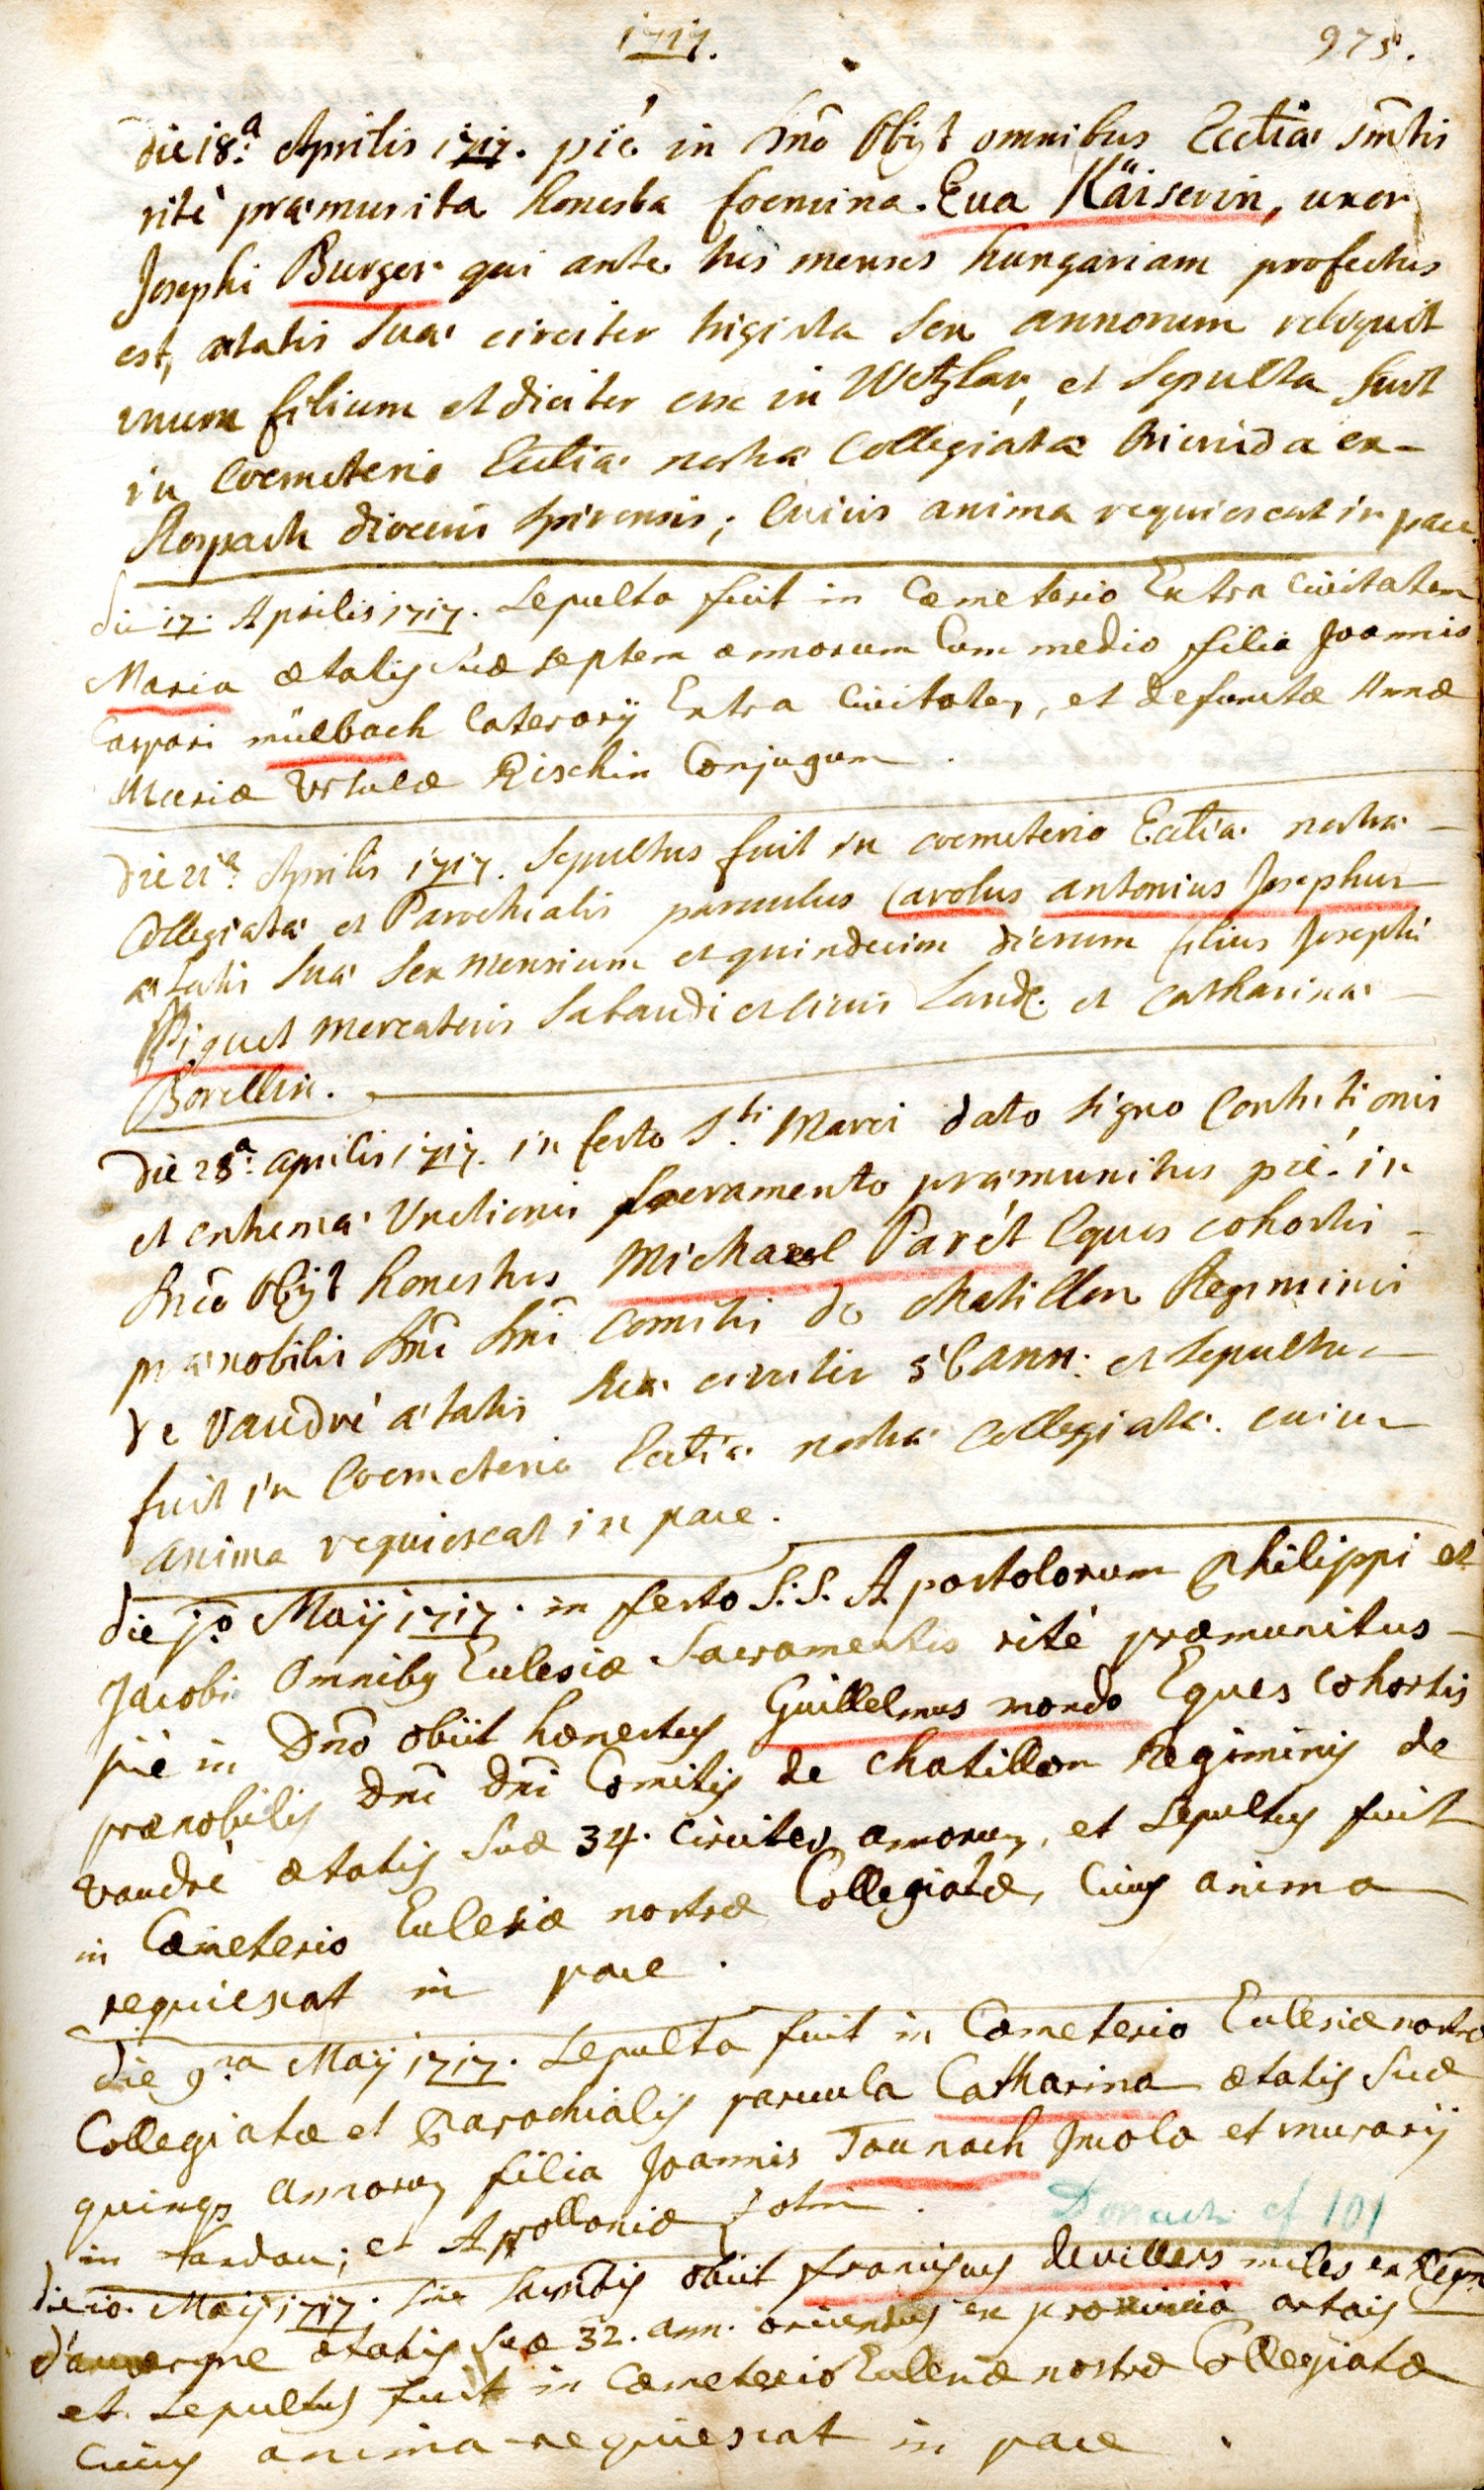 1717.
975.
die 18.a Aprilis 1717. pié in Dnō Obijt omnibus Ecctiæ Smtis
rité præmunita honesta foemina Eua Käiserin, uxor
Josephi Burger qui ante tres menses hungariam profectus
est, ætatis suæ circiter triginta sex annorum reliquit
unum filium et dicitur esse in Wetzlar, et sepulta fuit
in Coemeterio Ecctiæ nostræ Collegiatæ oriunda ex-
Rospach diocesis Spirensis; Cuius anima requiescat in pace.
die 17. Aprilis 1717. sepulta fuit in Cæmeterio Extra Ciuitatem
Maria ætatis suæ septem annorum Cum medio filia Joannis
Caspari mülbach laterarij Extra Ciuitatem, et defunctæ Annæ
Mariæ Ursulæ Rischin Conjugum.
Die 21.a Aprilis 1717. Sepultus fuit in coemeterio Ecctiæ nostræ
Collegiatæ et Parochialis paruulus Carolus antonius Josephus
ætatis suæ sex mensium et quindecim dierum filius Josephi
Piquet mercatoris Sabaudi et ciuis Land. et Catharinæ
Borellin.
Die 28.a aprilis 1717. in festo S.ti Marci dato signo Contritionis
et extremæ Unctionis sacramento præmunitus pié in
Dnō Obijt honestus Michael Parét Eques cohortis
prænobilis Dnī Dnī Comitis de chatillon Regiminis
de Vaudré ætatis suæ circiter 36 ann: et sepultus
fuit in Coemeterio Ecctiæ nostræ Collegiatæ. cuius
anima requiescat in pace.
die j.o Maij 1717. in festo S.S. Apostolorum Philippi et
Jacobi Omnibq Eclesiæ Sacramentis rité præmunitus
pié in Dnō obiit honestus Guillelmus mondo Eques cohortis
prænobilis Dnī Dnī Comitis de chatillon Regiminis de
vaudré ætatis suæ 34. circiter annorum, et sepultus fuit
in Cæmeterio Eclesiæ nostræ Collegiatæ, Cuius anima
requiescat in pace.
die 9.na Maij 1717. sepulta fuit in Cæmeterio Eclesiæ nostræ
Collegiatæ et Parochialis paruula Catharina ætatis suæ
quinqs annorum filia Joannis Taunach Jncola et murarij
in Landau; et Apolloniæ
Donach cf 101
die 10. Maij 1717. sine sacmtis obiit franciscus devillers miles ex Regm
d'auuergne ætatis suæ 32. ann. oriundus ex prouincia artois
et sepultus fuit in Cæmeterio Eclesiæ nostræ Collegiatæ
Cuius anima requiescat in pace.